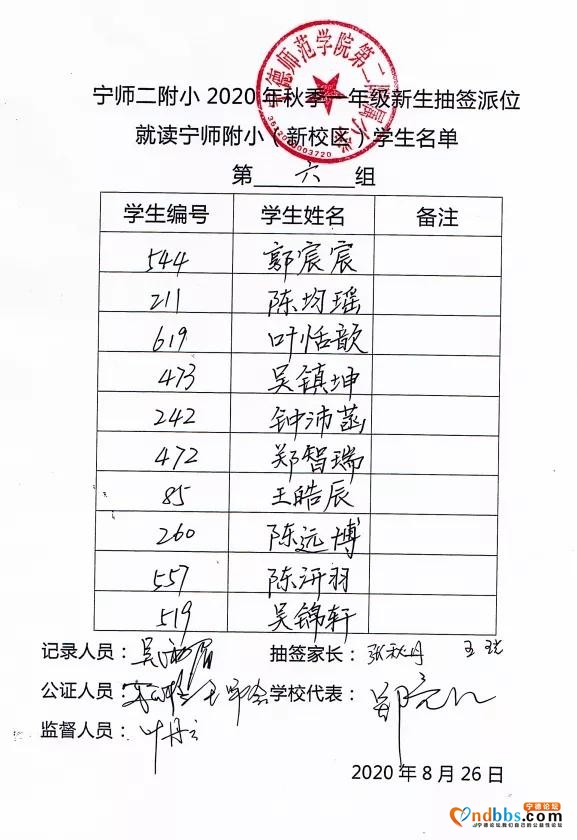 宁德师范学院第二附属小学
3512020003720
宁师二附小 2020 年秋季一年级新生抽签派位
就读宁师附小（新校区）学生名单
第 六 组
学生编号 学生姓名 备注
544 郭宸宸
211 陈均瑶
619 叶恬歆
473 吴镇坤
242 钟沛菡
472 郑智瑞
85 王皓辰
260 陈远博
557 陈汧羽
519 吴锦轩
记录人员： 抽签家长：张秋月
公证人员： 学校代表：
监督人员：
2020 年 8 月 26 日
宁德论坛
ndbbs.com
宁德论坛我们自己的公益性论坛